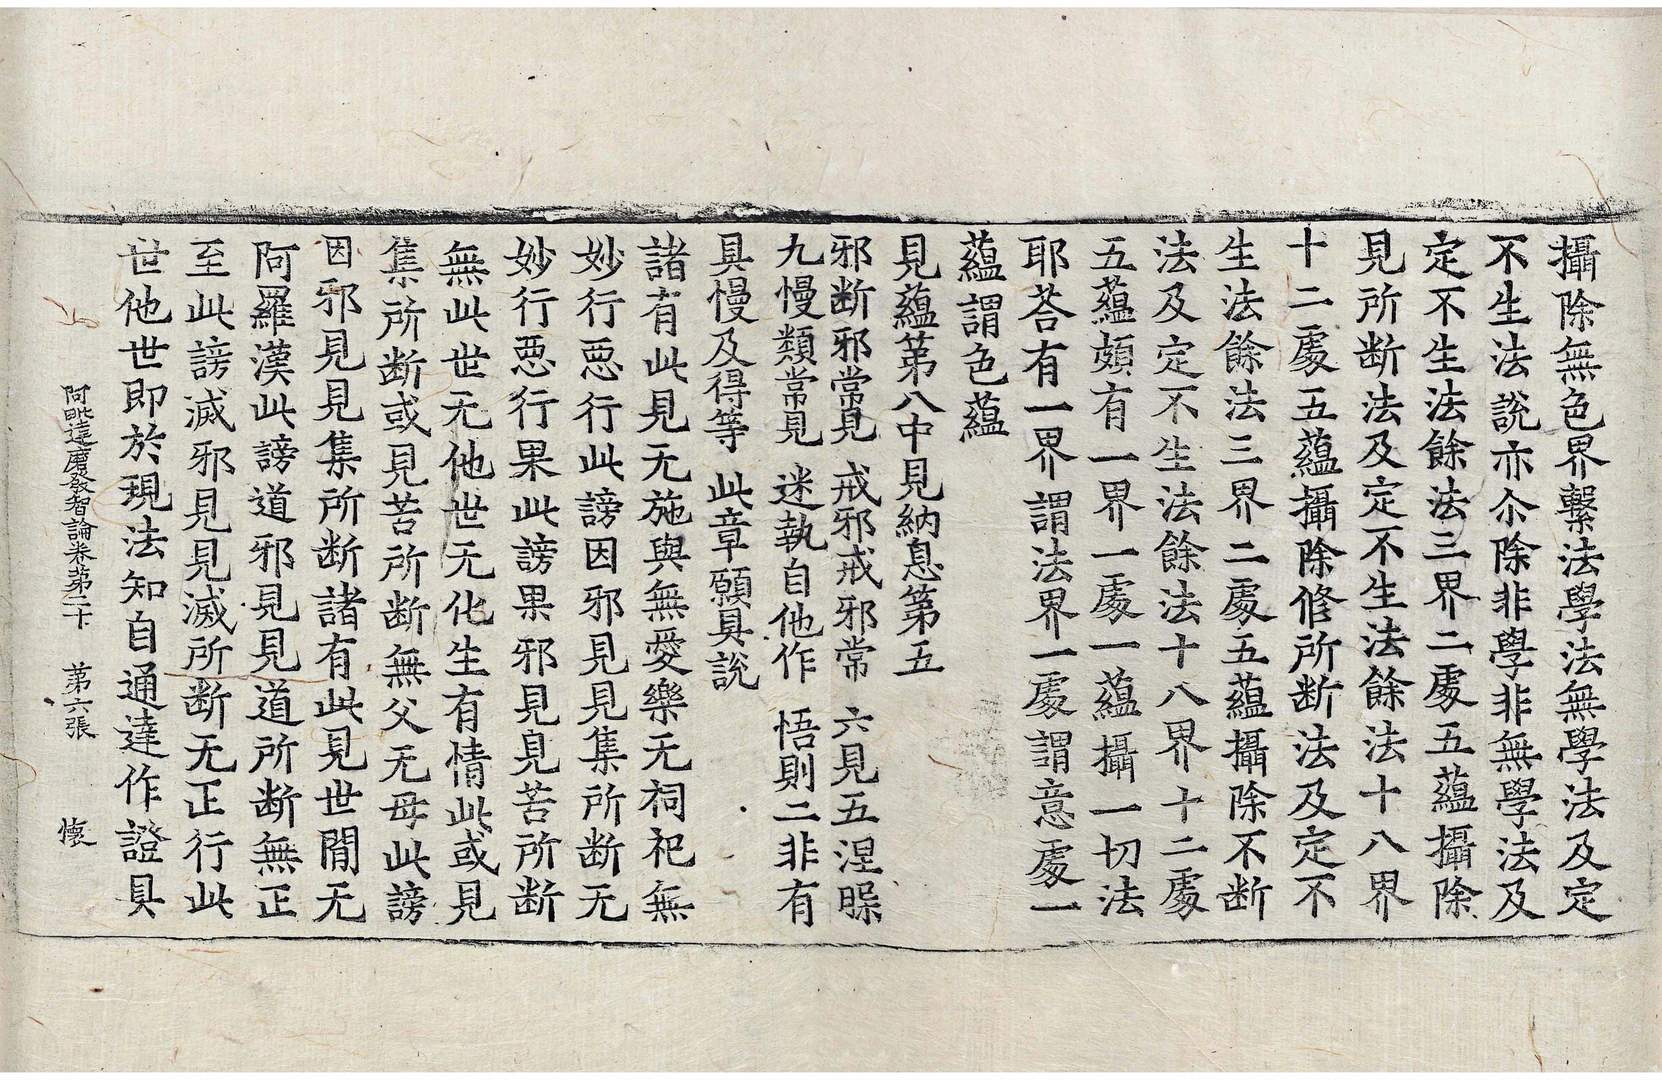 攝除無色界繫法學法無學法及定
不生法說亦尒除非學非無學法及
定不生法餘法三界二處五蘊攝除
見所斷法及定不生法餘法十八界
十二處五蘊攝除修所斷法及定不
生法餘法三界二處五蘊攝除不斷
法及定不生法餘法十八界十二處
五蘊頗有一界一處一蘊攝一切法
耶荅有一界謂法界一處謂意處一
蘊謂色蘊
見蘊第八中見納息第五
邪斷邪常見 戒邪戒邪常 六見五涅槃
九慢類常見 迷執自他作 悟則二非有
具慢及得等 此章願具說
諸有此見无施與無愛樂无祠祀無
妙行惡行此謗因邪見見集所斷无
妙行惡行果此謗果邪見見苦所斷
無此世无他世无化生有情此或見
集所斷或見苦所斷無父无母此謗
因邪見見集所斷諸有此見世閒无
阿羅漢此謗道邪見見道所斷無正
至此謗滅邪見見滅所斷无正行此
世他世即於現法知自通達作證具
阿毗達磨發智論卷第二十 第六張 懷